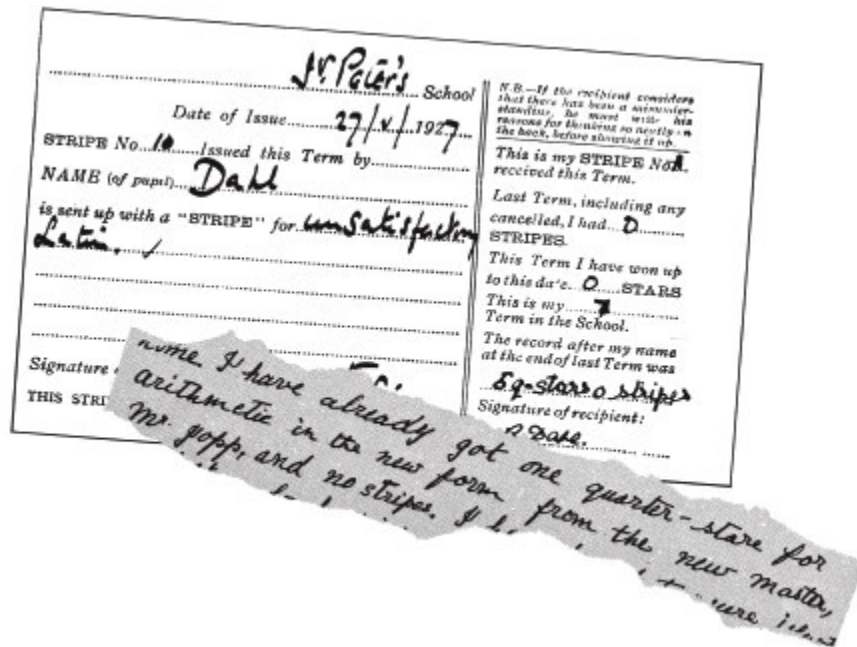 St. Peter's School
Date of Issue 27/V/1927
STRIPE No. 10 Issued this Term by
NAME (of pupil) Dahl
is sent up with a "STRIPE" for unsatisfactory
Latin.
Signature
THIS STRI
N.B.—If the recipient considers
that there has been a misunder-
standing, he must write his
reasons for thinking so neatly on
the back, before showing it up.
This is my STRIPE No.
received this Term.
Last Term, including any
cancelled, I had 0
STRIPES.
This Term I have won up
to this date 0 STARS
This is my 7
Term in the School.
The record after my name
at the end of last Term was
stars 0 stripes
Signature of recipient:
Dahl.
I have already got one quarter-stare for
arithmetic in the new form from the new master,
Mr. Jopp, and no stripes. I